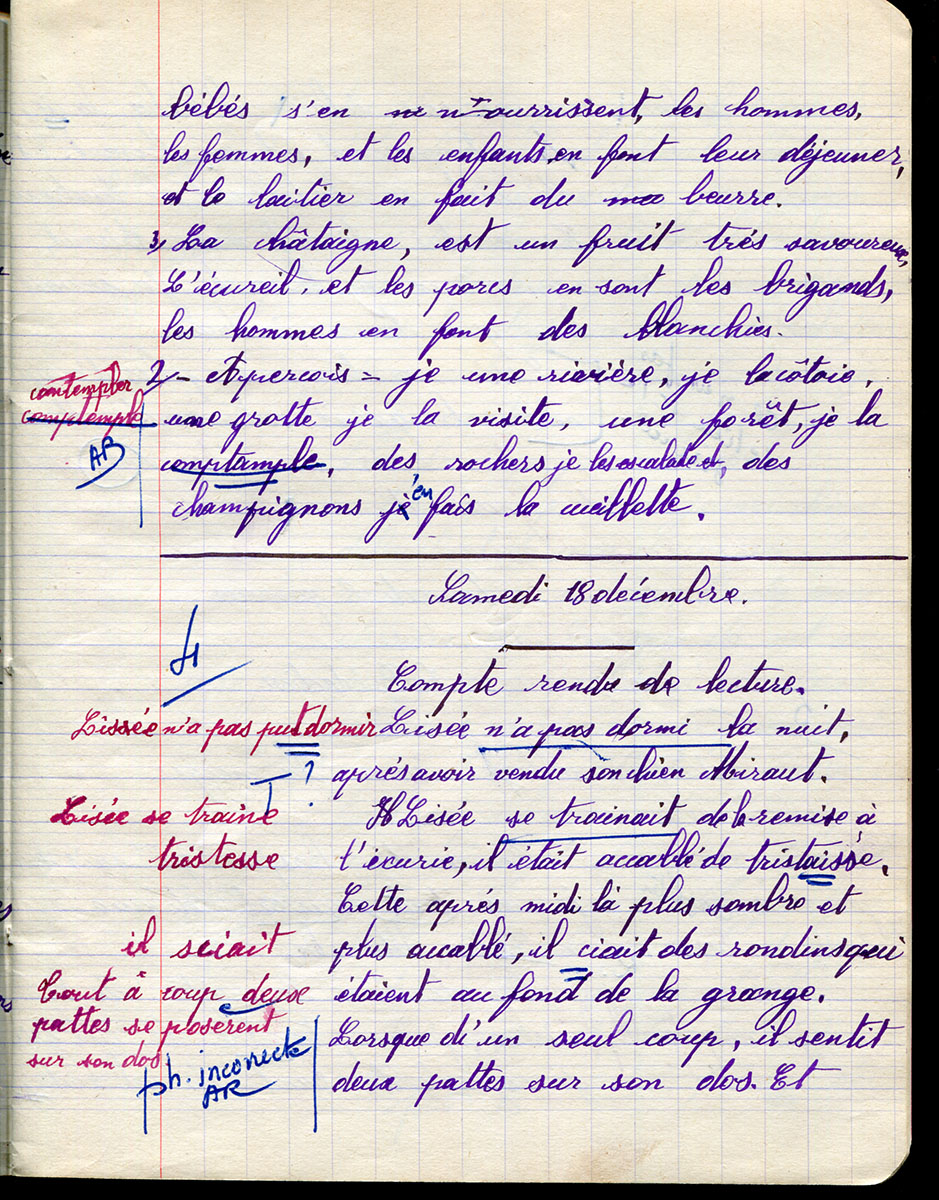 bébés s'en nourrissent, les hommes,
les femmes, et les enfants, en font leur déjeuner,
et le laitier en fait du beurre.
3, La châtaigne, est un fruit trés savoureux,
L'écureil, et les porcs en sont les brigands,
les hommes en font des blanchies.
contempler
2, - Apercois = je une rivière, je la côtoie,
une grotte je la visite, une forêt, je la
AR
comptample, des rochers je les escalade et, des
champignons j'en fais la cueillette.
Samedi 18 décembre.
4
Compte rendu de lecture.
Lissée n'a pas put dormir
Lisée n'a pas dormi la nuit,
T ?
aprés avoir vendu son chien Miraut.
Lisée se traine
Lisée se trainait de la remise à
tristesse
l'écurie, il était accablé de tristaisse.
Cette aprés midi là plus sombre et
il sciait
plus accablé, il ciait des rondins qui
Tout à coup deuse
étaient au fond de la grange.
pattes se posèrent
Lorsque d'un seul coup, il sentit
sur son dos
ph. inconecte
AR
deux pattes sur son dos. Et